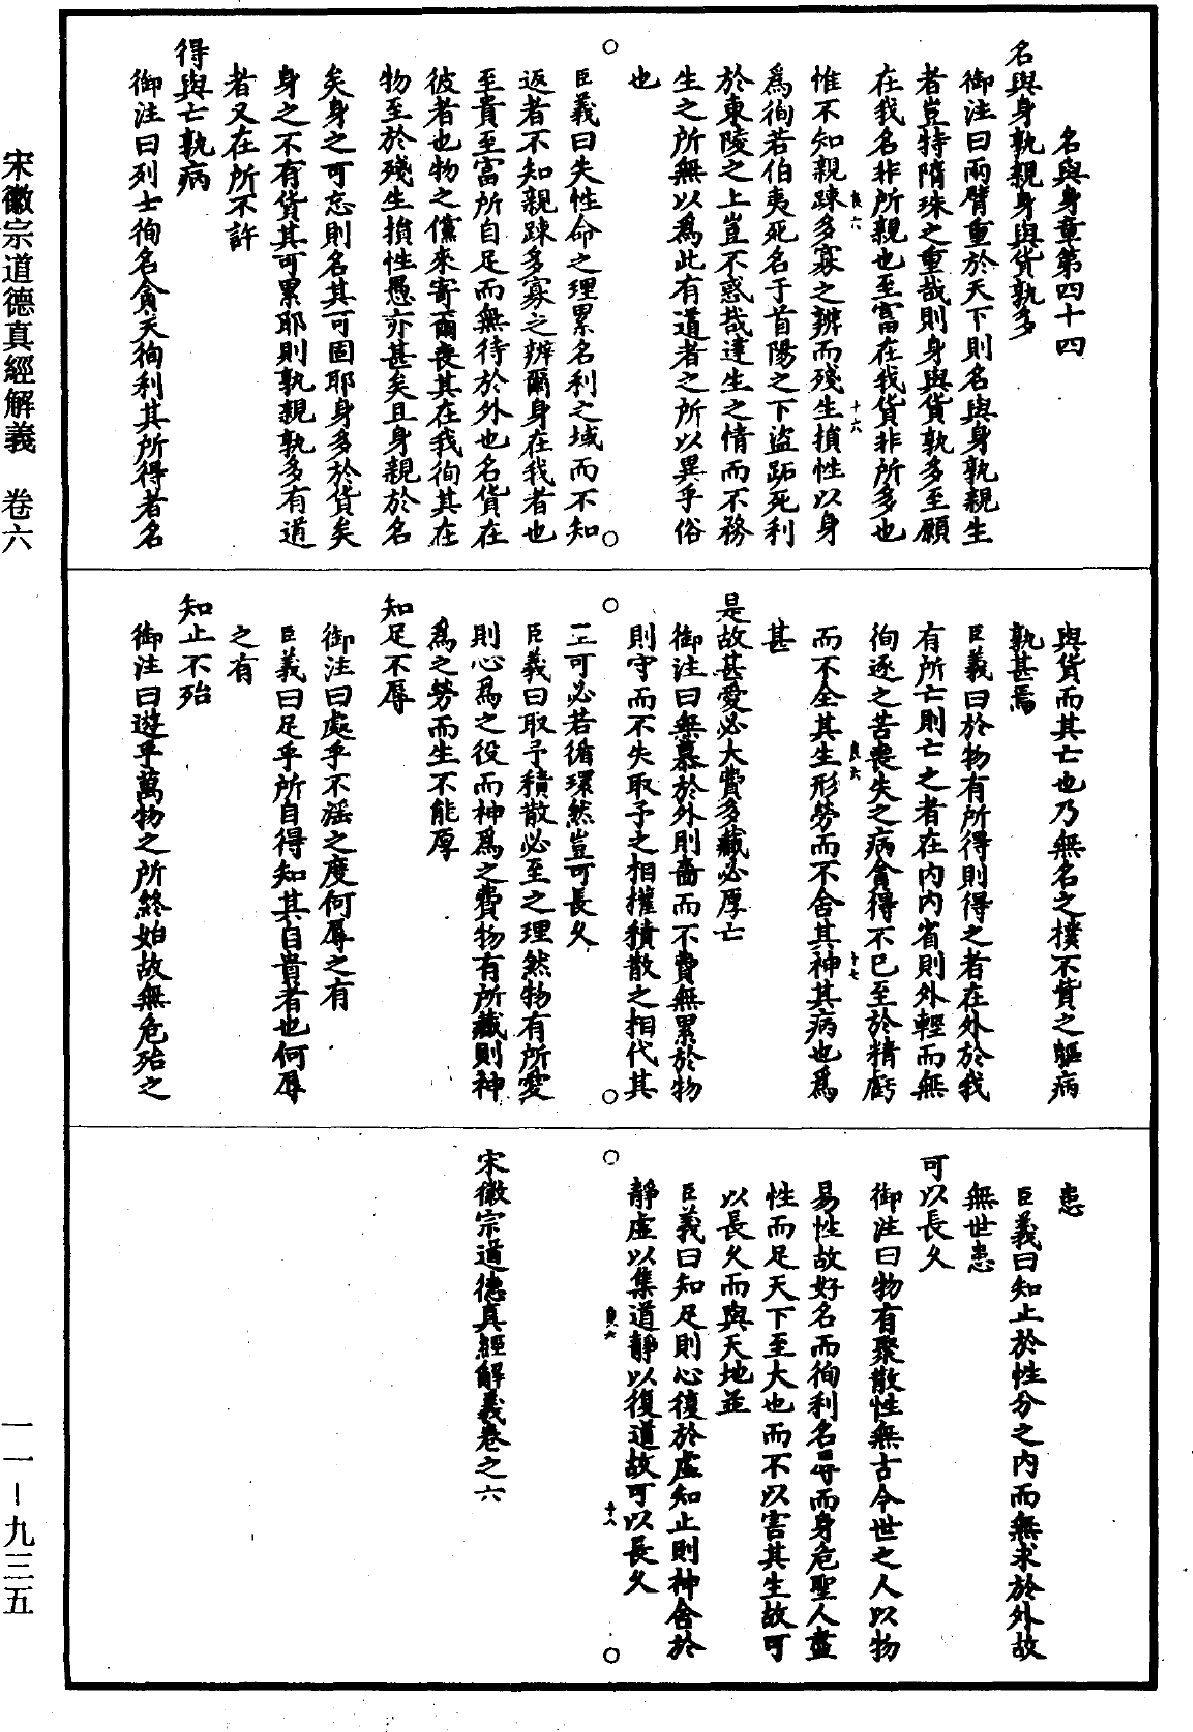 名與身章第四十四
名與身孰親身與貨孰多
御注曰兩臂重於天下則名與身孰親生
者豈特隋珠之重哉則身與貨孰多至願
在我名非所親也至富在我貨非所多也
惟不知親踈多寡之辨而殘生損性以身
為徇若伯夷死名于首陽之下盜跖死利
於東陵之上豈不惑哉達生之情而不務
生之所無以爲此有道者之所以異乎俗
也
臣義曰失性命之理累名利之域而不知
返者不知親踈多寡之辨爾身在我者也
至貴至富所自足而無待於外也名貨在
彼者也物之儻來寄爾喪其在我徇其在
物至於殘生損性愚亦甚矣且身親於名
矣身之可忘則名其可固耶身多於貨矣
身之不有貨其可累耶則孰親孰多有道
者又在所不許
得與亡孰病
御注曰列士徇名貪夫徇利其所得者名
與貨而其亡也乃無名之樸不貲之軀病
孰甚焉
臣義曰於物有所得則得之者在外於我
有所亡則亡之者在内内省則外輕而無
徇逐之苦喪失之病貪得不已至於精虧
而不全其生形勞而不舍其神其病也爲
甚
是故甚愛必大費多藏必厚亡
御注曰無慕於外則嗇而不費無累於物
則守而不失取予之相權積散之相代其
至可必若循環然豈可長久
臣義曰取予積散必至之理然物有所愛
則心爲之役而神爲之費物有所藏則神
爲之勞而生不能厚
知足不辱
御注曰處乎不淫之度何辱之有
臣義曰足乎所自得知其自貴者也何辱
之有
知止不殆
御注曰遊乎萬物之所終始故無危殆之
患
臣義曰知止於性分之内而無求於外故
無世患
可以長久
御注曰物有聚散性無古今世之人以物
易性故好名而徇利名辱而身危聖人盡
性而足天下至大也而不以害其生故可
以長久而與天地並
臣義曰知足則心復於虛知止則神舍於
靜虛以集道靜以復道故可以長久
宋徽宗道德真經解義卷之六
良六
十六
良六
十七
良六
十八
宋徽宗道德真經解義 卷六
一一－九三五